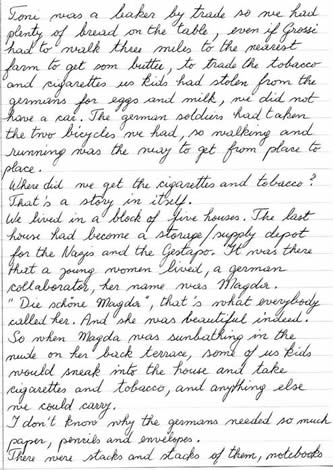 Toni was a baker by trade so we had
plenty of bread on the table, even if Grossi
had to walk three miles to the nearest
farm to get som butter, to trade the tobacco
and cigarettes us kids had stolen from the
germans for eggs and milk, we did not
have a car. The german soldiers had taken
the two bicycles we had, so walking and
running was the way to get from place to
place.
Where did we get the cigarettes and tobacco?
That's a story in itself.
We lived in a block of five houses. The last
house had become a storage/supply depot
for the Nazis and the Gestapo. It was there
that a young women lived, a german
collaborater, her name was Magda.
"Die schöne Magda", that's what everybody
called her. And she was beautiful indeed.
So when Magda was sunbathing in the
nude on her back terrace, some of us kids
would sneak into the house and take
cigarettes and tobacco, and anything else
we could carry.
I don't know why the germans needed so much
paper, pencils and envelopes.
There were stacks and stacks of them, notebooks